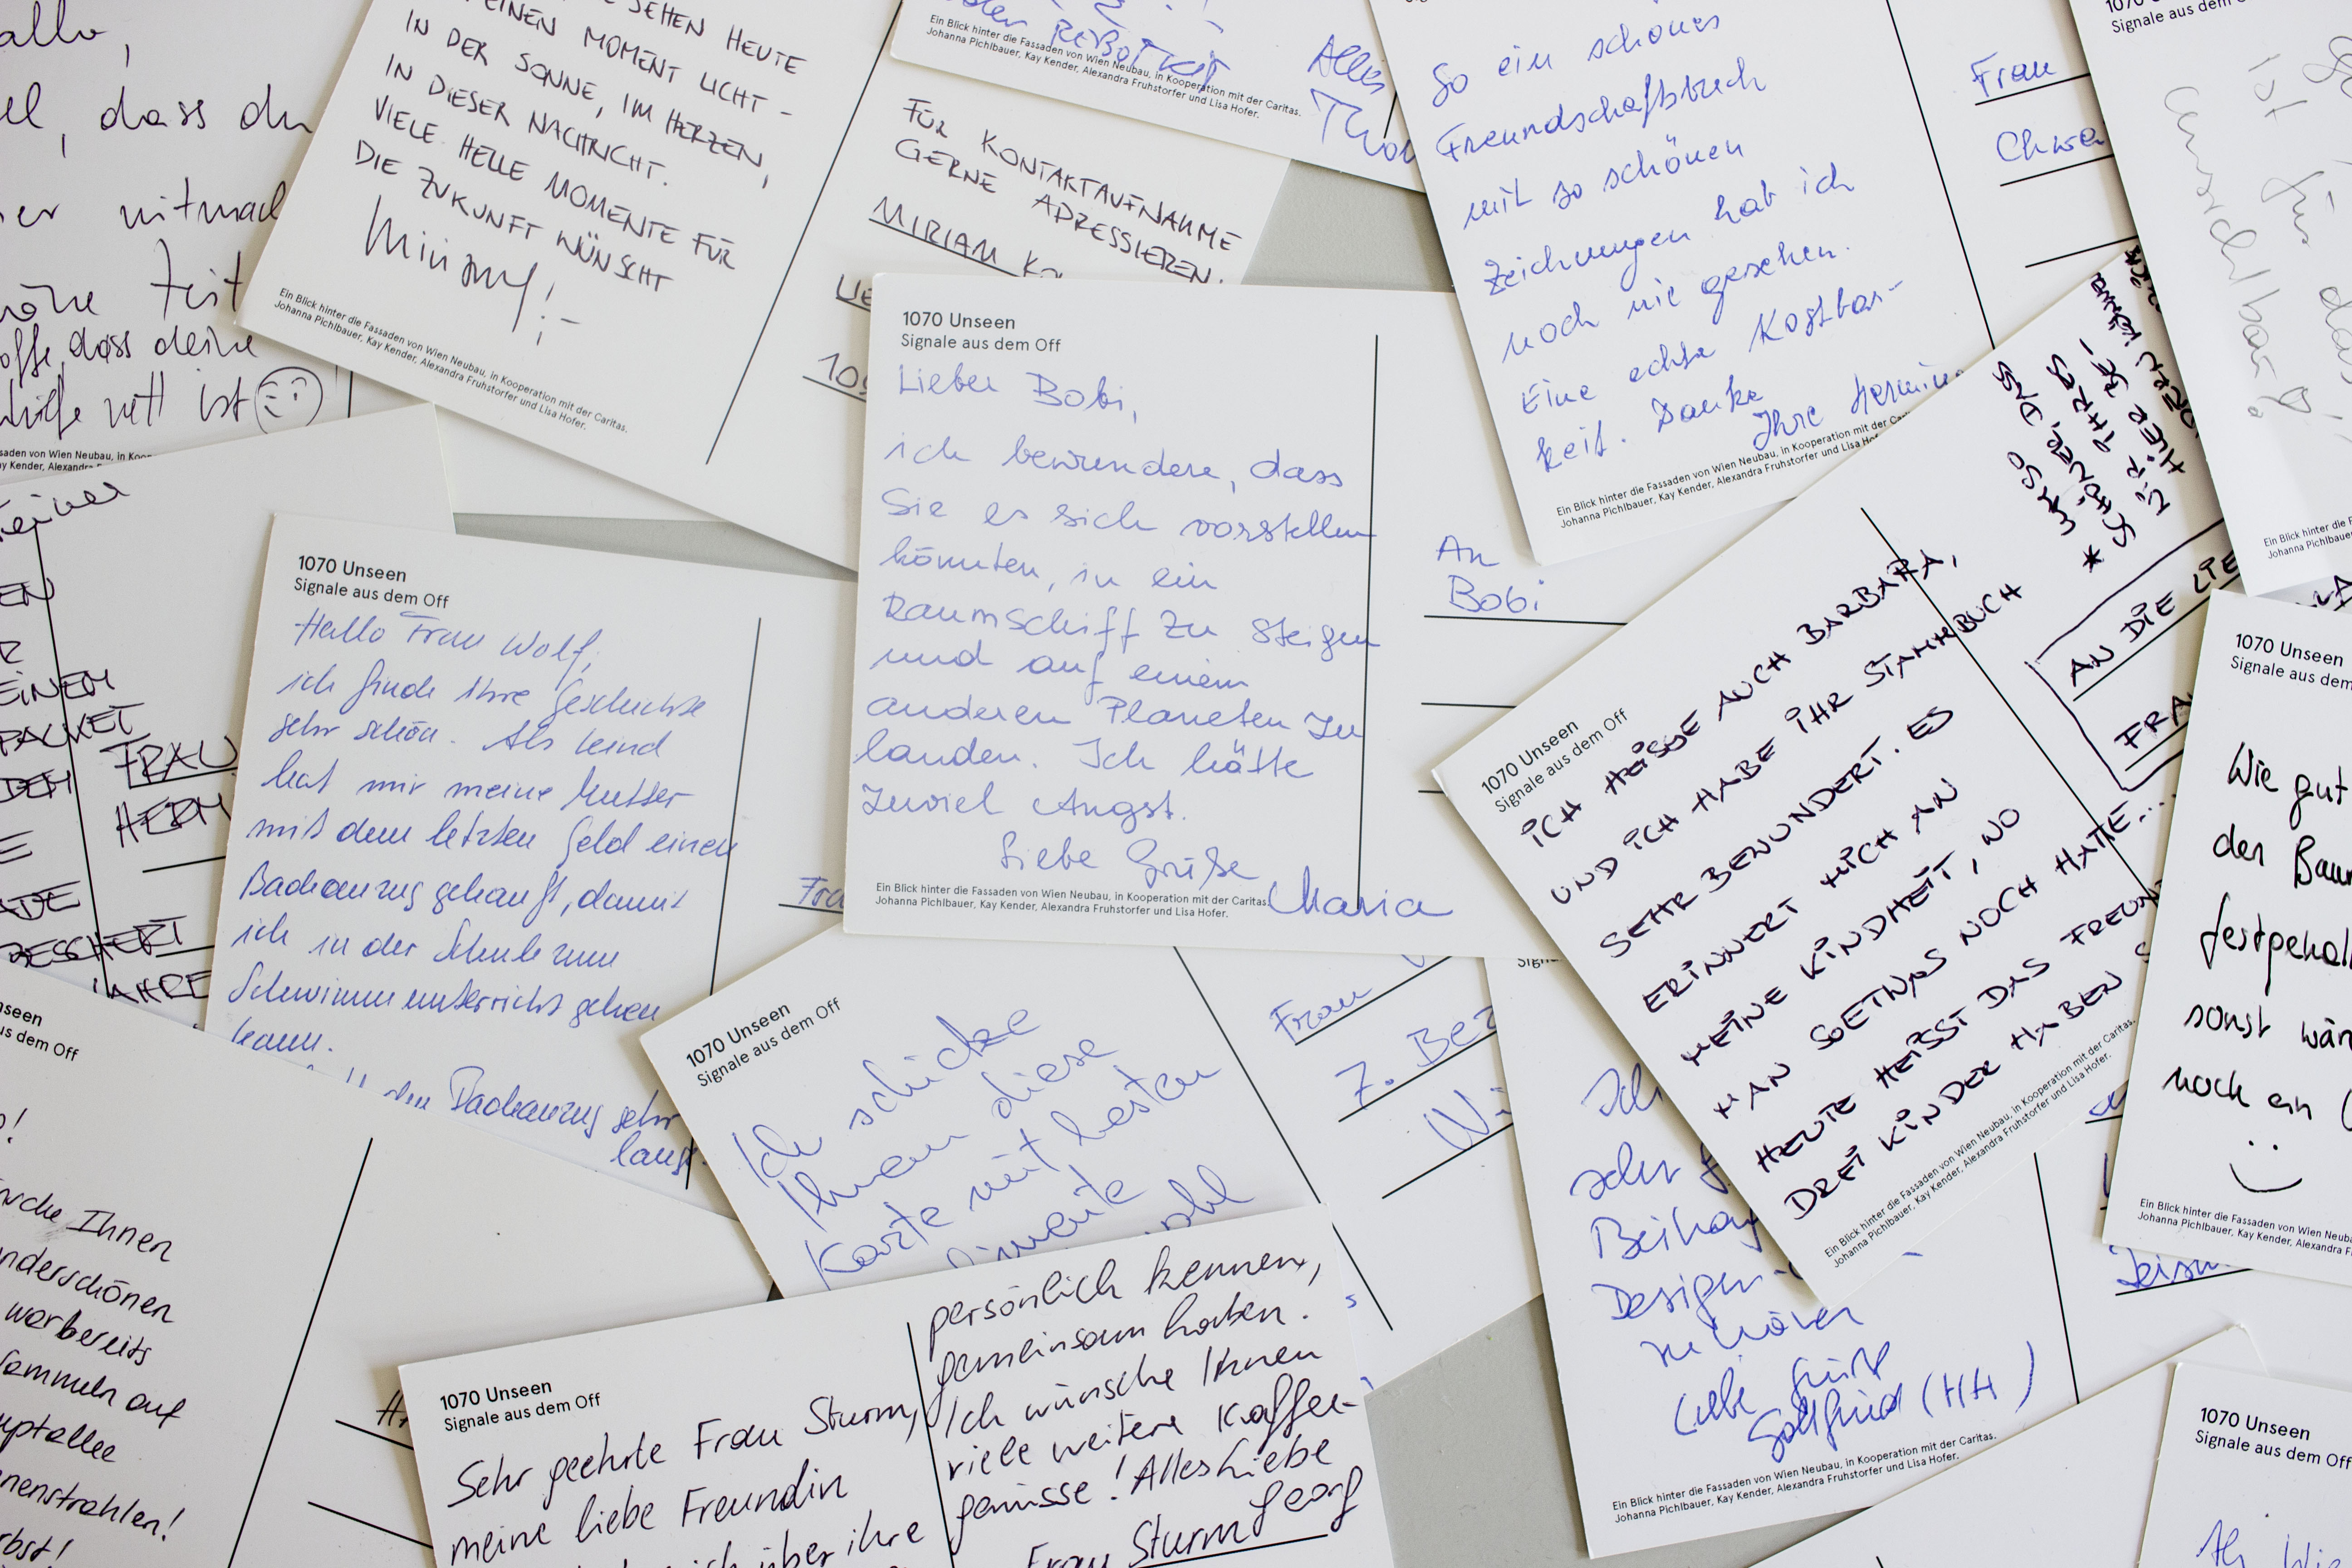 allo,
dass du
mitmach
Zeit
dass deine
nett ist
SEHEN HEUTE
EINEN MOMENT LICHT -
IN DER SONNE, IM HERZEN,
IN DIESER NACHRICHT.
VIELE HELLE MOMENTE FÜR
DIE ZUKUNFT WÜNSCHT
Ein Blick hinter die Fassaden von Wien Neubau, in Kooperation mit der Caritas.
Johanna Pichlbauer, Kay Kender, Alexandra Fruhstorfer und Lisa Hofer.
FÜR KONTAKTAUFNAHME
GERNE ADRESSIEREN:
MIRIAM KO
Ein Blick hinter die Fassaden von Wien Neubau, in Kooperation mit der Caritas.
Johanna Pichlbauer, Kay Kender, Alexandra Fruhstorfer und Lisa Hofer.
Alles
So ein schönes
Freundschaftsbuch
mit so schönen
Zeichnungen hab ich
noch nie gesehen.
Eine echte Kostbar-
keit. Danke
Ihre Hermine
Ein Blick hinter die Fassaden von Wien Neubau, in Kooperation mit der
Johanna Pichlbauer, Kay Kender, Alexandra Fruhstorfer und Lisa
Frau
Chwa
Signale aus dem
ist für das
unsichtbar
1070 Unseen
Signale aus dem Off
Lieber Bobi,
ich bewundere, dass
Sie es sich vorstellen
könnten, in ein
Raumschiff zu steigen
und auf einem
anderen Planeten zu
landen. Ich hätte
zuviel Angst.
Liebe Grüße
Maria
Ein Blick hinter die Fassaden von Wien Neubau, in Kooperation mit der Caritas.
Johanna Pichlbauer, Kay Kender, Alexandra Fruhstorfer und Lisa Hofer.
An
Bobi
1070 Unseen
Signale aus dem Off
Hallo Frau Wolf,
ich finde Ihre Geschichte
sehr schön. Als Kind
hat mir meine Mutter
mit dem letzten Geld einen
Badeanzug gekauft, damit
ich in der Schule zum
Schwimmunterricht gehen
kann.
Badeanzug sehr
lang
EINEM
PACKET
DEM
BESCHERT
JAHRE
FRAU
HERM
1070 Unseen
Signale aus dem Off
ICH HEISSE AUCH BARBARA,
UND ICH HABE IHR STAMMBUCH
SEHR BEWUNDERT. ES
ERINNERT MICH AN
MEINE KINDHEIT, WO
MAN SOETWAS NOCH HATTE...
HEUTE HEISST DAS FREUN
DREI KINDER HABEN
Ein Blick hinter die Fassaden von Wien Neubau, in Kooperation mit der Caritas.
Johanna Pichlbauer, Kay Kender, Alexandra Fruhstorfer und Lisa Hofer.
* UMSO
SCHÖNER, DAS
WIR IHRES
HIER SE-
AN DIE LIE
FRA
1070 Unseen
Signale aus dem
Wie gut
der Baum
festgehal
sonst wär
noch ein
Ein Blick hinter die Fassaden von Wien Neubau
Johanna Pichlbauer, Kay Kender, Alexandra F
1070 Unseen
Signale aus dem Off
Ich schicke
Ihnen diese
Karte mit besten
Frau
7. Bez
Wi
Ich
sehr
Design-
zu hören
Liebe Grüße
Gottfried (HH)
Ein Blick hinter die Fassaden von Wien Neubau, in Kooperation mit der Caritas.
Johanna Pichlbauer, Kay Kender, Alexandra Fruhstorfer und Lisa Hofer.
aus dem Off
Ihnen
nderschönen
war bereits
Sammeln auf
uptallee
nenstrahlen!
rbst!
1070 Unseen
Signale aus dem Off
Sehr geehrte Frau Sturm,
meine liebe Freundin
über ihre
persönlich kennen,
gemeinsam haben.
Ich wünsche Ihnen
viele weitere Kaffee-
genüsse! Alles Liebe
Georg
Frau Sturm
1070 Unseen
Signale aus dem Off